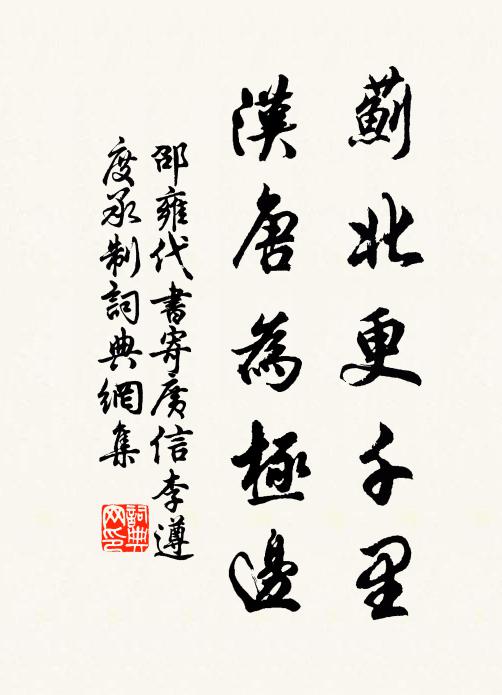 薊北更千里
漢唐為極邊
邵雍代書寄廣信李遵
度承制詞典網集
詞典
网印